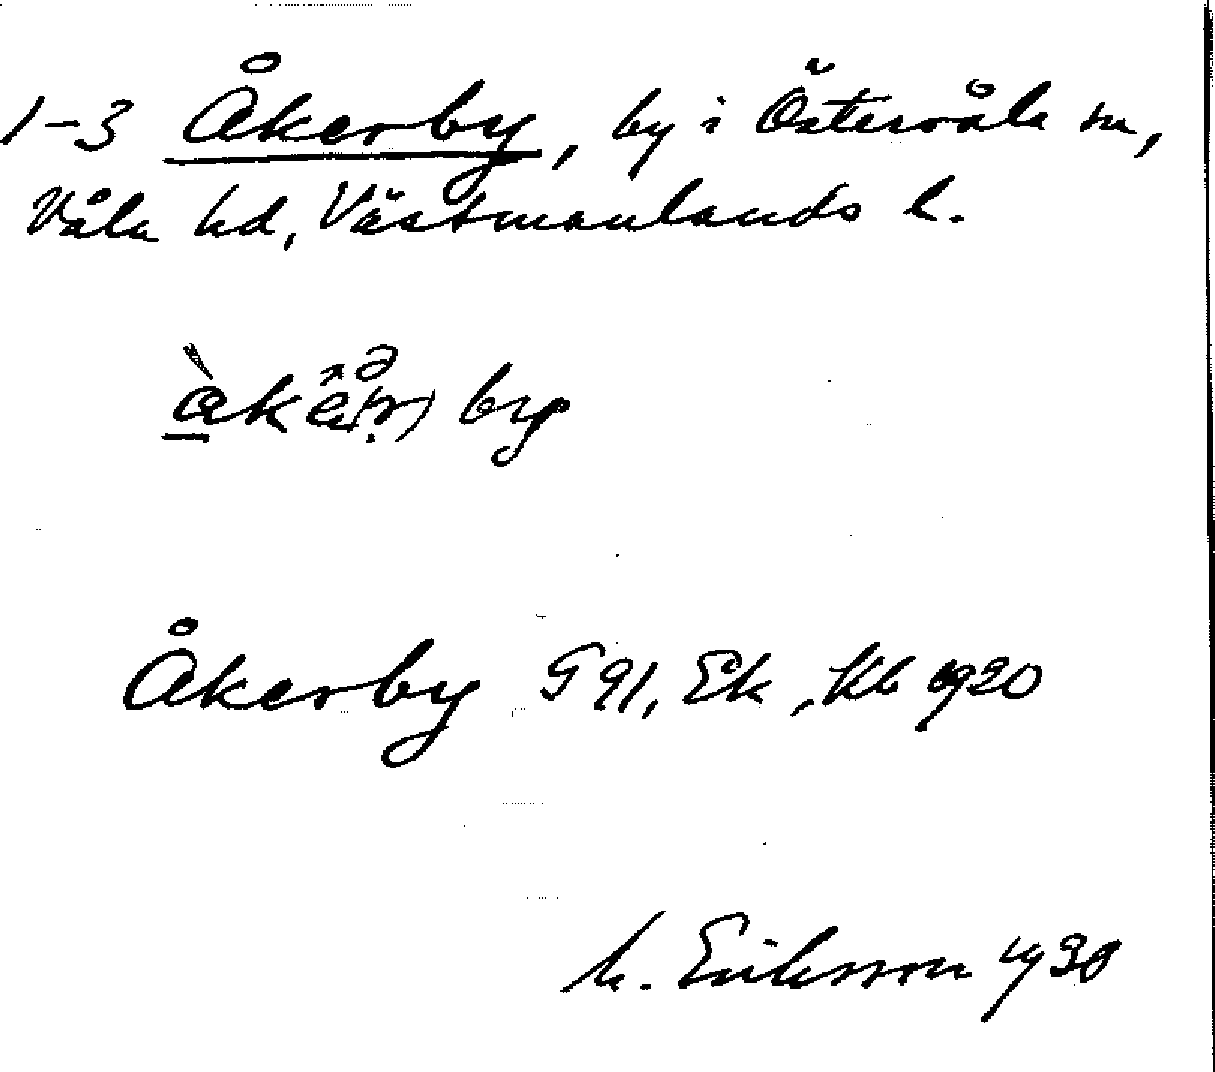 1-3 Åkerby, by i Östervåla sn,
Våla hd, Västmanlands l.
by
Åkerby G 91, Ek, Kb 1920
M. Eriksson 1930